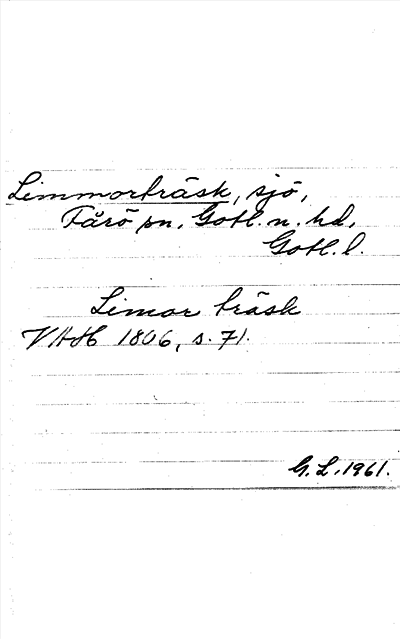 Limmorträsk, sjö,
Fårö sn, Gotl. n. hd,
Gotl. l.
Limor träsk
VAH 1806, s. 71.
G. L. 1961.